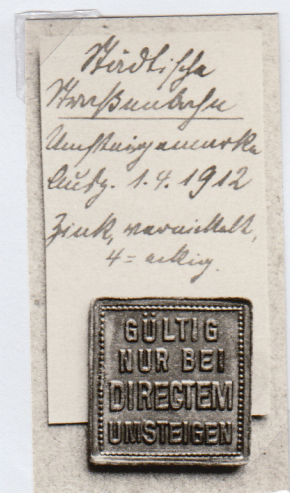 Städtische
Straßenbahn
Umsteigemarke
Ausg. 1.4.1912
Zink, vernickelt,
4=eckig.
GÜLTIG
NUR BEI
DIRECTEM
UMSTEIGEN